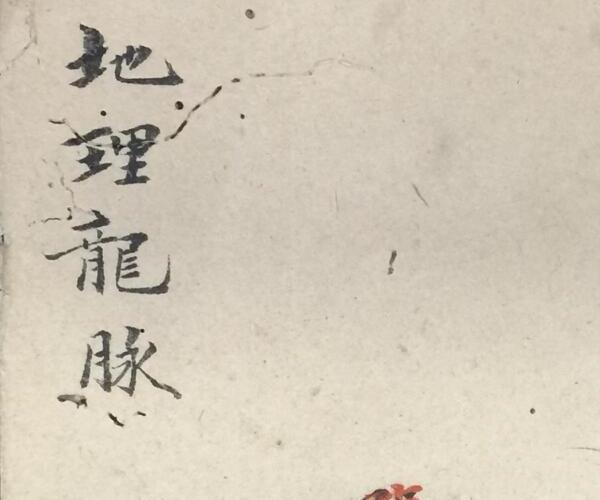 地理龍脉